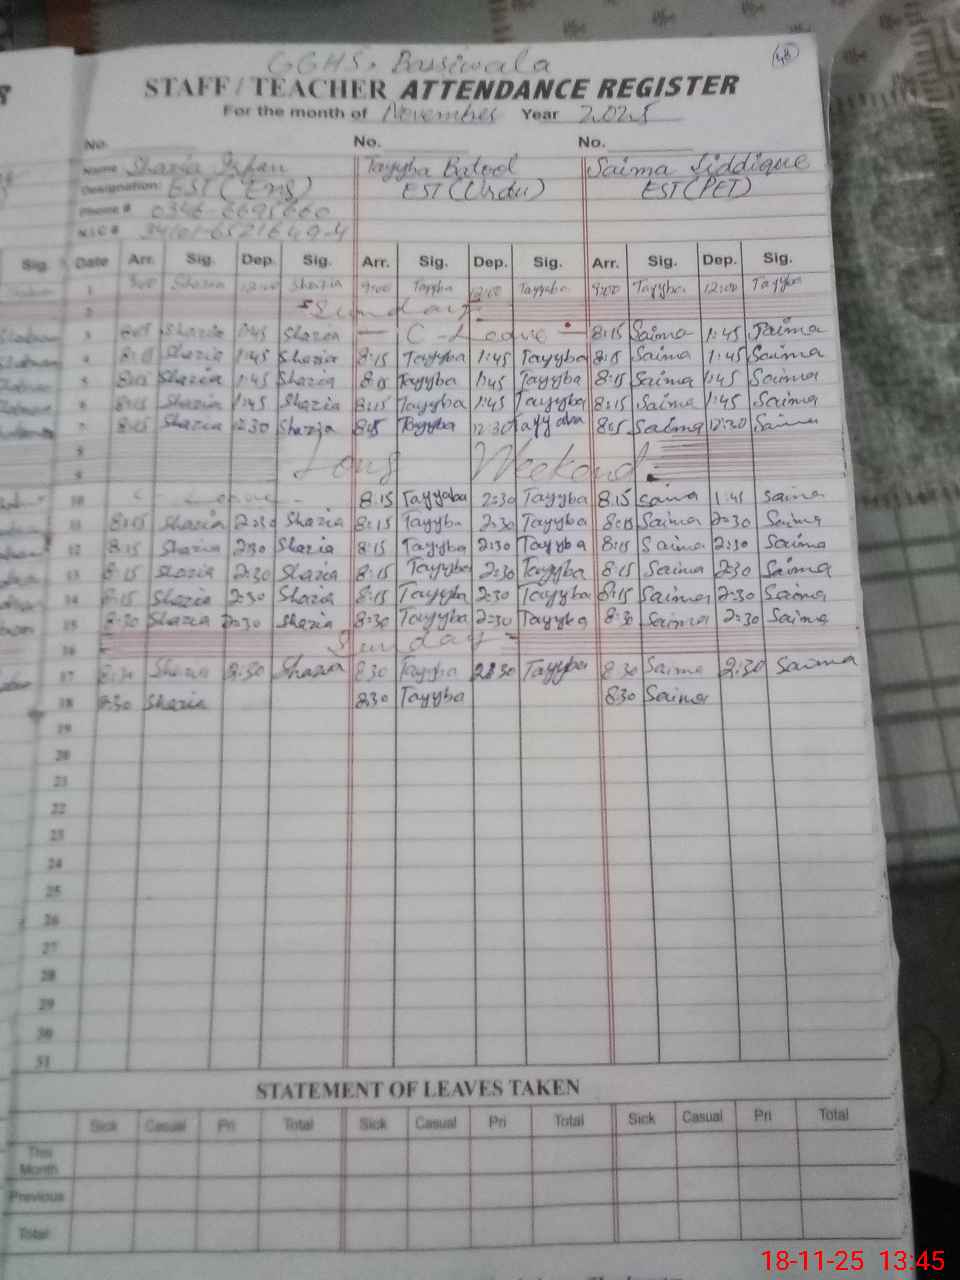 48
GGHS, Bassiwala
STAFF / TEACHER ATTENDANCE REGISTER
For the month of November Year 2025
No. No. No.
Name Shazia Irfan Tayyba Batool Saima Siddique
Designation: EST (Eng) EST (Urdu) EST (PET)
Phone #
N.I.C #
Sig. Date Arr. Sig. Dep. Sig. Arr. Sig. Dep. Sig. Arr. Sig. Dep. Sig.
1 9:00 Shazia 12:00 Shazia 9:00 Tayyba 12:00 Tayyaba 9:00 Tayyba 12:00 Tayyba
2 Sunday
3 8:15 Shazia 1:45 Shazia - C - Leave - 8:15 Saima 1:45 Saima
4 8:15 Shazia 1:45 Shazia 8:15 Tayyba 1:45 Tayyba 8:15 Saima 1:45 Saima
5 8:15 Shazia 1:45 Shazia 8:15 Tayyba 1:45 Tayyba 8:15 Saima 1:45 Saima
6 8:15 Shazia 1:45 Shazia 8:15 Tayyba 1:45 Tayyba 8:15 Saima 1:45 Saima
7 8:15 Shazia 12:30 Shazia 8:15 Tayyba 12:30 Tayyaba 8:15 Saima 12:30 Saima
8 Long Weekend.
9
10 C - Leave - 8:15 Tayyaba 2:30 Tayyba 8:15 Saima 1:45 Saima
11 8:15 Shazia 2:30 Shazia 8:15 Tayyba 2:30 Tayyba 8:15 Saima 2:30 Saima
12 8:15 Shazia 2:30 Shazia 8:15 Tayyba 2:30 Tayyba 8:15 Saima 2:30 Saima
13 8:15 Shazia 2:30 Shazia 8:15 Tayyba 2:30 Tayyba 8:15 Saima 2:30 Saima
14 8:15 Shazia 2:30 Shazia 8:15 Tayyba 2:30 Tayyba 8:15 Saima 2:30 Saima
15 8:30 Shazia 2:30 Shazia 8:30 Tayyba 2:30 Tayyba 8:30 Saima 2:30 Saima
16 Sunday
17 8:30 Shazia 2:30 Shazia 8:30 Tayyba 2:30 Tayyba 8:30 Saima 2:30 Saima
18 8:30 Shazia 8:30 Tayyba 8:30 Saima
19
20
21
22
23
24
25
26
27
28
29
30
31
STATEMENT OF LEAVES TAKEN
Sick Casual Pri Total Sick Casual Pri Total Sick Casual Pri Total
This Month
Previous
Total
18-11-25 13:45